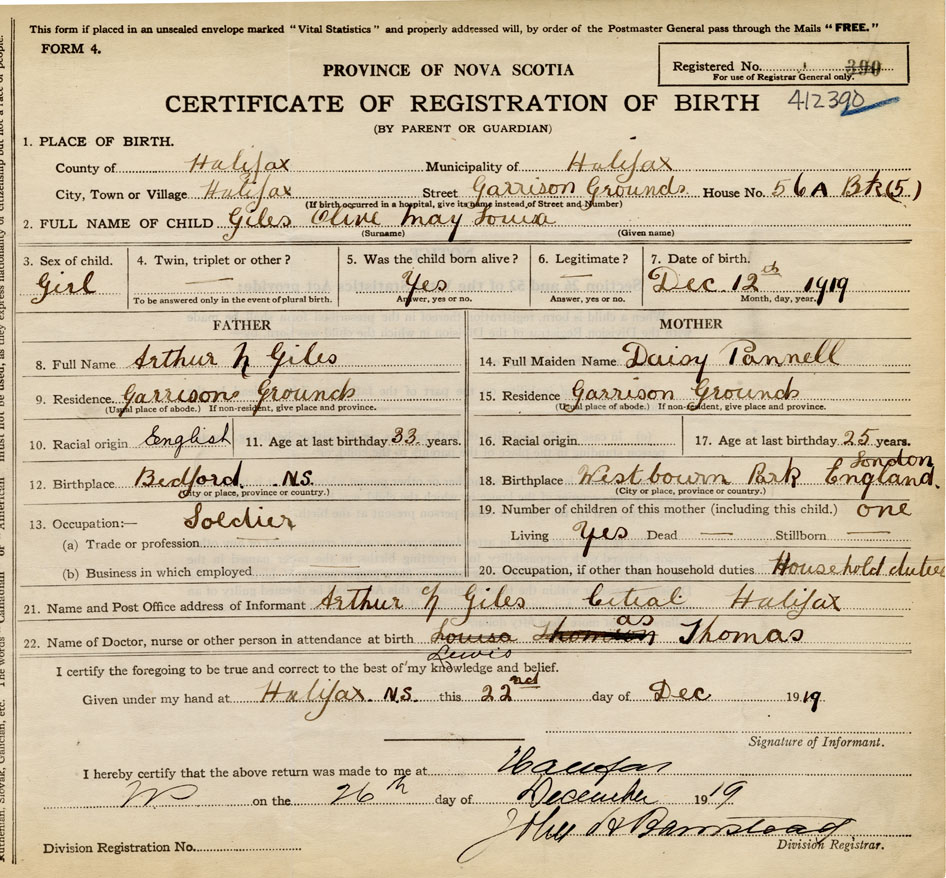 This form if placed in an unsealed envelope marked "Vital Statistics" and properly addressed will, by order of the Postmaster General pass through the Mails "FREE."
FORM 4.
Registered No. 390
For use of Registrar General only.
PROVINCE OF NOVA SCOTIA
CERTIFICATE OF REGISTRATION OF BIRTH 412390
(BY PARENT OR GUARDIAN)
1. PLACE OF BIRTH.
County of Halifax Municipality of Halifax
City, Town or Village Halifax Street Garrison Grounds House No. 56A Bk(5)
(If birth occurred in a hospital, give its name instead of Street and Number)
2. FULL NAME OF CHILD Giles Olive May Louisa
(Surname) (Given name)
3. Sex of child. 4. Twin, triplet or other? 5. Was the child born alive? 6. Legitimate? 7. Date of birth.
Girl — Yes — Dec 12th 1919
To be answered only in the event of plural birth. Answer, yes or no. Answer, yes or no. Month, day, year.
FATHER MOTHER
8. Full Name Arthur N Giles 14. Full Maiden Name Daisy Pannell
9. Residence Garrison Grounds 15. Residence Garrison Grounds
(Usual place of abode.) If non-resident, give place and province. (Usual place of abode.) If non-resident, give place and province.
10. Racial origin English 11. Age at last birthday 33 years. 16. Racial origin 17. Age at last birthday 25 years.
12. Birthplace Bedford. N.S. 18. Birthplace Westbourn Park London England.
(City or place, province or country.) (City or place, province or country.)
13. Occupation:— Soldier 19. Number of children of this mother (including this child.) one
(a) Trade or profession — Living Yes Dead — Stillborn —
(b) Business in which employed — 20. Occupation, if other than household duties Household duties
21. Name and Post Office address of Informant Arthur N Giles Halifax
22. Name of Doctor, nurse or other person in attendance at birth Louisa as Thomas
Lewis
I certify the foregoing to be true and correct to the best of my knowledge and belief.
Given under my hand at Halifax. N.S. this 22nd day of Dec 1919
Signature of Informant.
I hereby certify that the above return was made to me at Halifax
NS on the 26th day of December 1919
Division Registration No. Division Registrar.